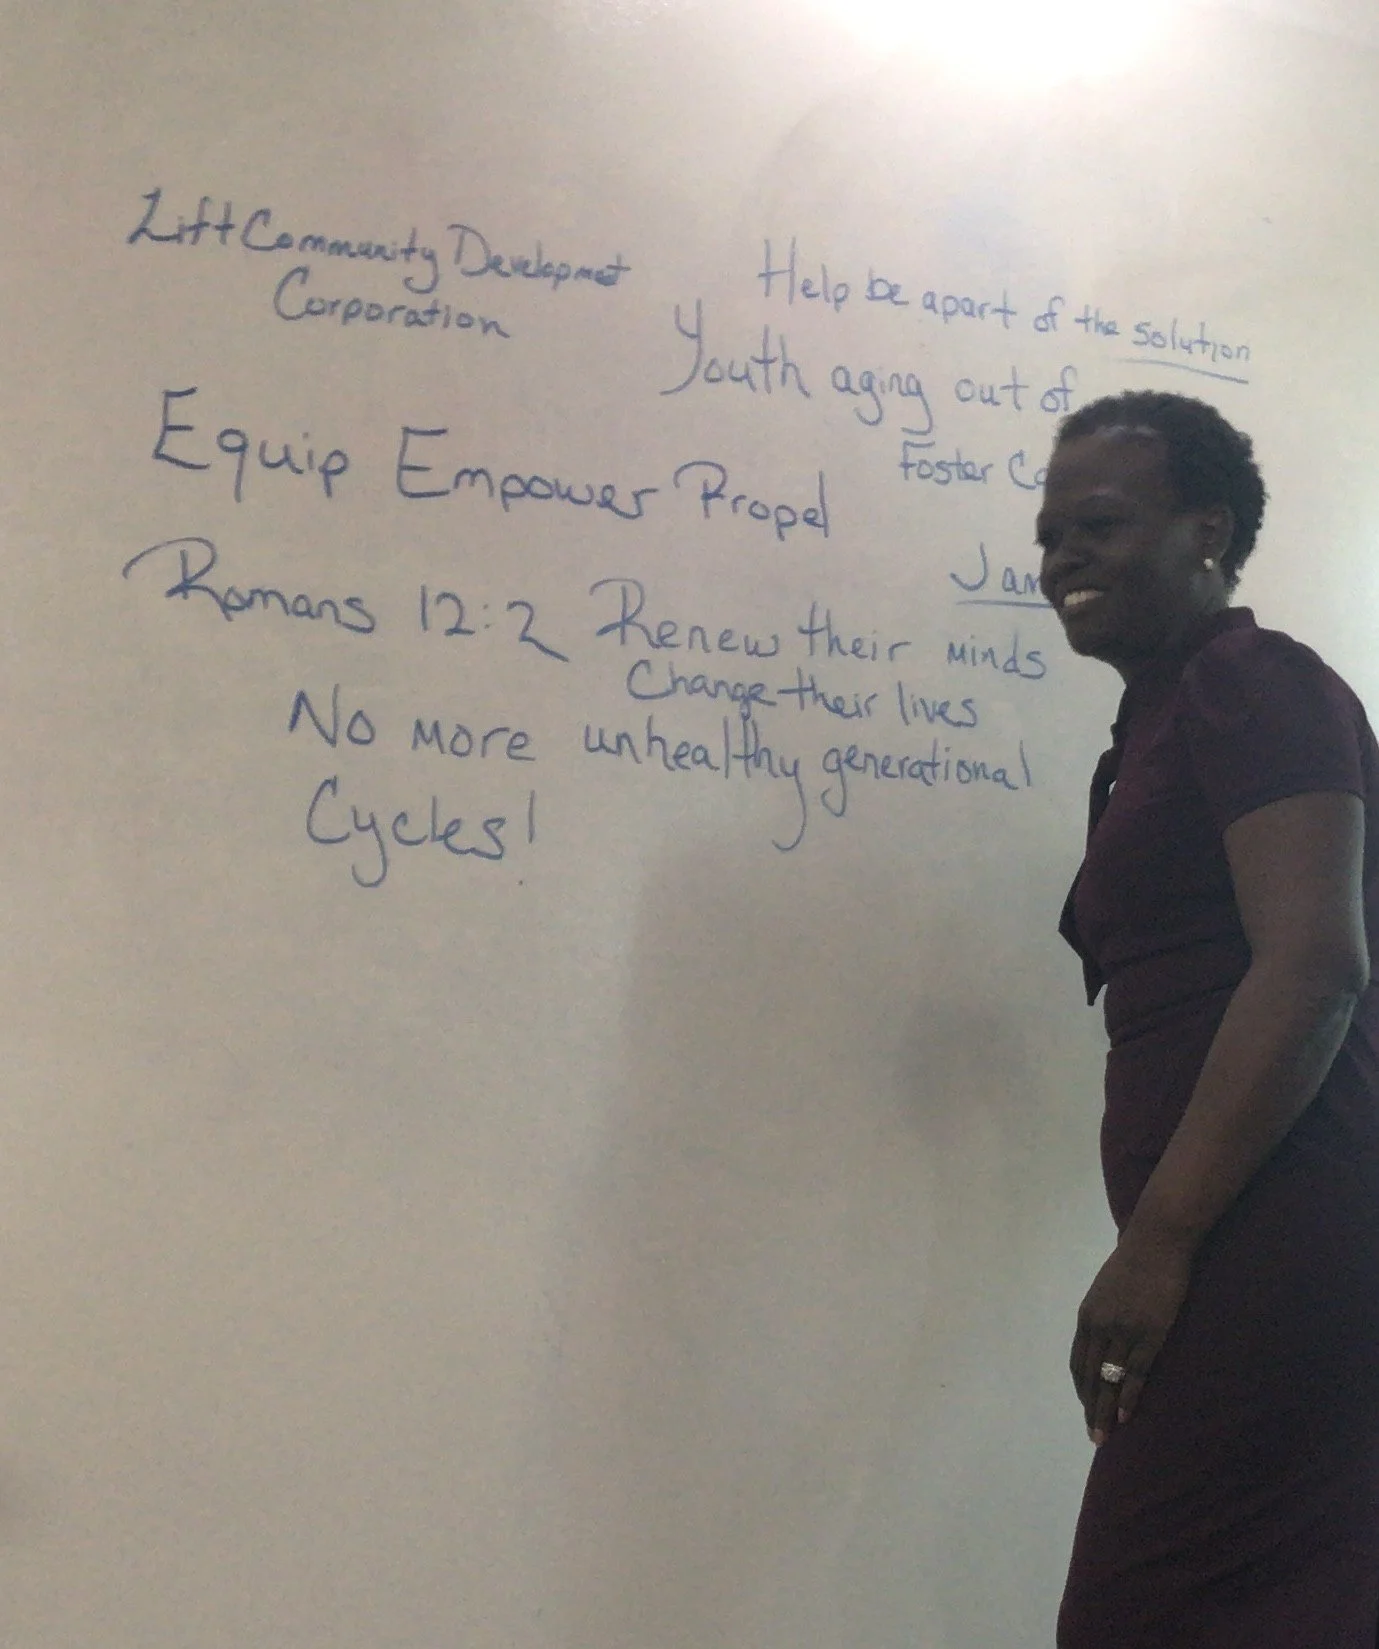 Lift Community Development
Corporation
Help be apart of the solution
Youth aging out of
Foster
Equip Empower Propel
Romans 12:2 Renew their minds
Change their lives
No more unhealthy generational
Cycles!